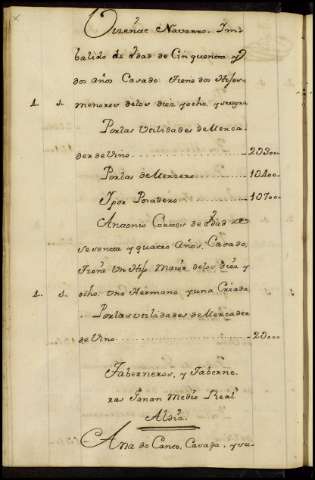 Navarro. Im
balido de Edad de Cinquenta y
dos años Casado. Tiene dos Hijos
1. 1. menores delos diez yocho, y
Porlas Utilidades de Merca
der de Vino 2200..
Porlas de Mercero 1100..
Ypor Posadero 1070..
Antonio de Edad de
Sesenta y quatro años, Casado,
Tiene Un Hijo Maior delos diez y
1. 1. ocho: Uno Hermano yuna Criada
Porlas Utilidades de Mercader
de Vino 20..
Taberneros, y Taberne
ras Ganan Medio Real
Aldia.
Ana de Canto, Casada, y